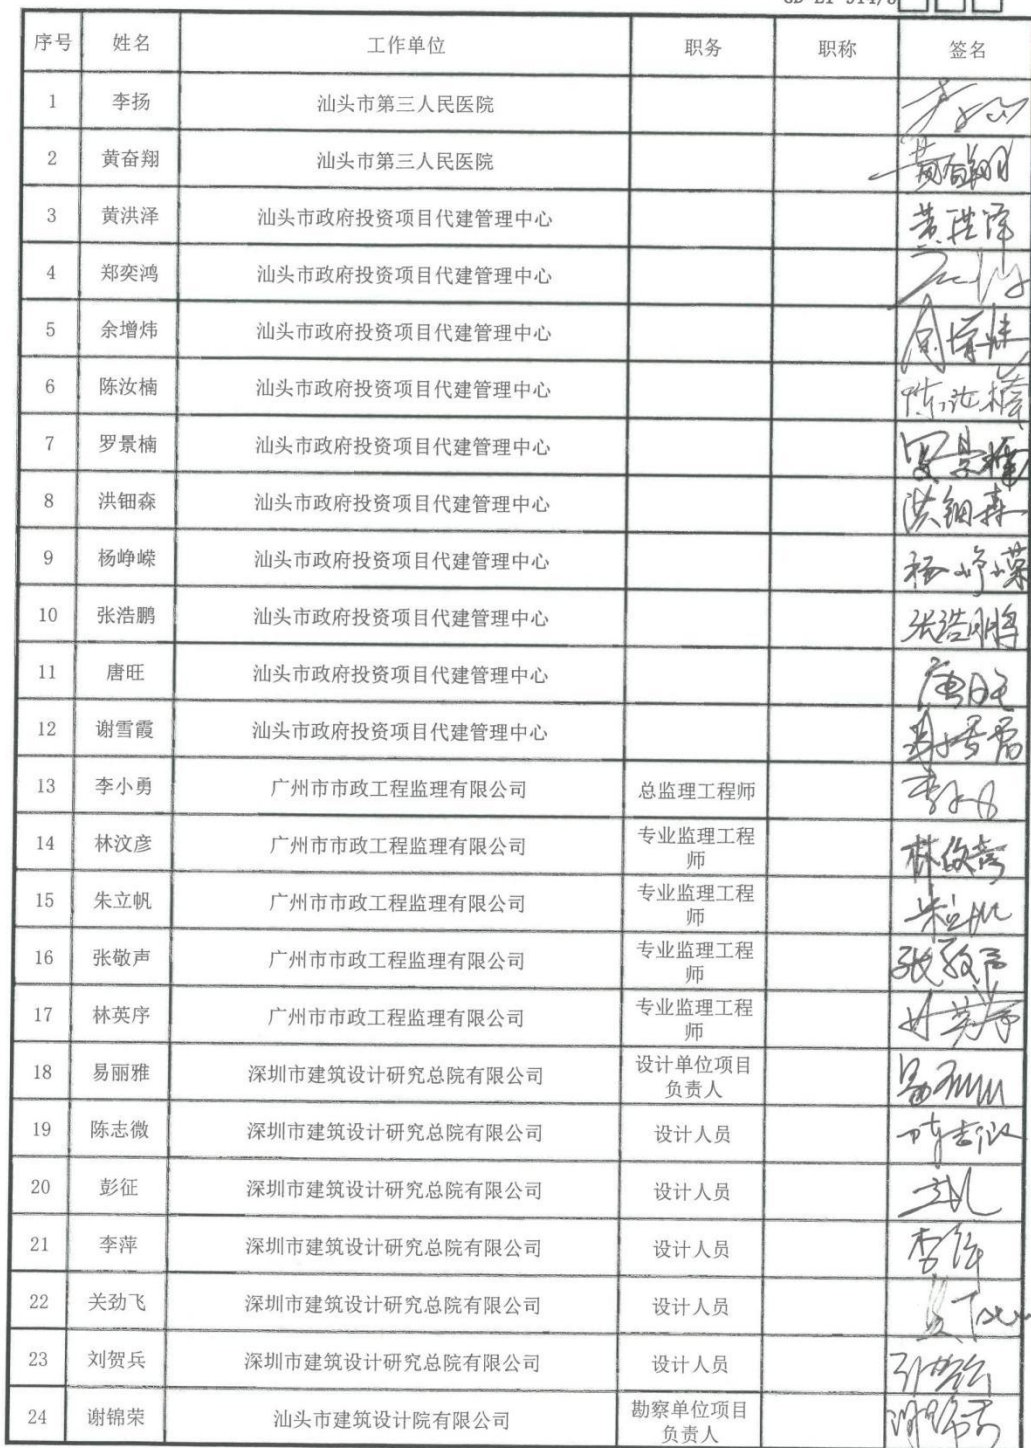 序号 姓名 工作单位 职务 职称 签名
1 李扬 汕头市第三人民医院
2 黄奋翔 汕头市第三人民医院 黄奋翔
3 黄洪泽 汕头市政府投资项目代建管理中心 黄洪泽
4 郑奕鸿 汕头市政府投资项目代建管理中心
5 余增炜 汕头市政府投资项目代建管理中心 余增炜
6 陈汝楠 汕头市政府投资项目代建管理中心 陈汝楠
7 罗景楠 汕头市政府投资项目代建管理中心 罗景楠
8 洪钿森 汕头市政府投资项目代建管理中心 洪钿森
9 杨峥嵘 汕头市政府投资项目代建管理中心 杨峥嵘
10 张浩鹏 汕头市政府投资项目代建管理中心 张浩鹏
11 唐旺 汕头市政府投资项目代建管理中心 唐旺
12 谢雪霞 汕头市政府投资项目代建管理中心
13 李小勇 广州市市政工程监理有限公司 总监理工程师
14 林汶彦 广州市市政工程监理有限公司 专业监理工程
师
15 朱立帆 广州市市政工程监理有限公司 专业监理工程
师
16 张敬声 广州市市政工程监理有限公司 专业监理工程
师 张敬声
17 林英序 广州市市政工程监理有限公司 专业监理工程
师 林英序
18 易丽雅 深圳市建筑设计研究总院有限公司 设计单位项目
负责人
19 陈志微 深圳市建筑设计研究总院有限公司 设计人员 陈志微
20 彭征 深圳市建筑设计研究总院有限公司 设计人员
21 李萍 深圳市建筑设计研究总院有限公司 设计人员 李萍
22 关劲飞 深圳市建筑设计研究总院有限公司 设计人员
23 刘贺兵 深圳市建筑设计研究总院有限公司 设计人员
24 谢锦荣 汕头市建筑设计院有限公司 勘察单位项目
负责人 谢锦荣